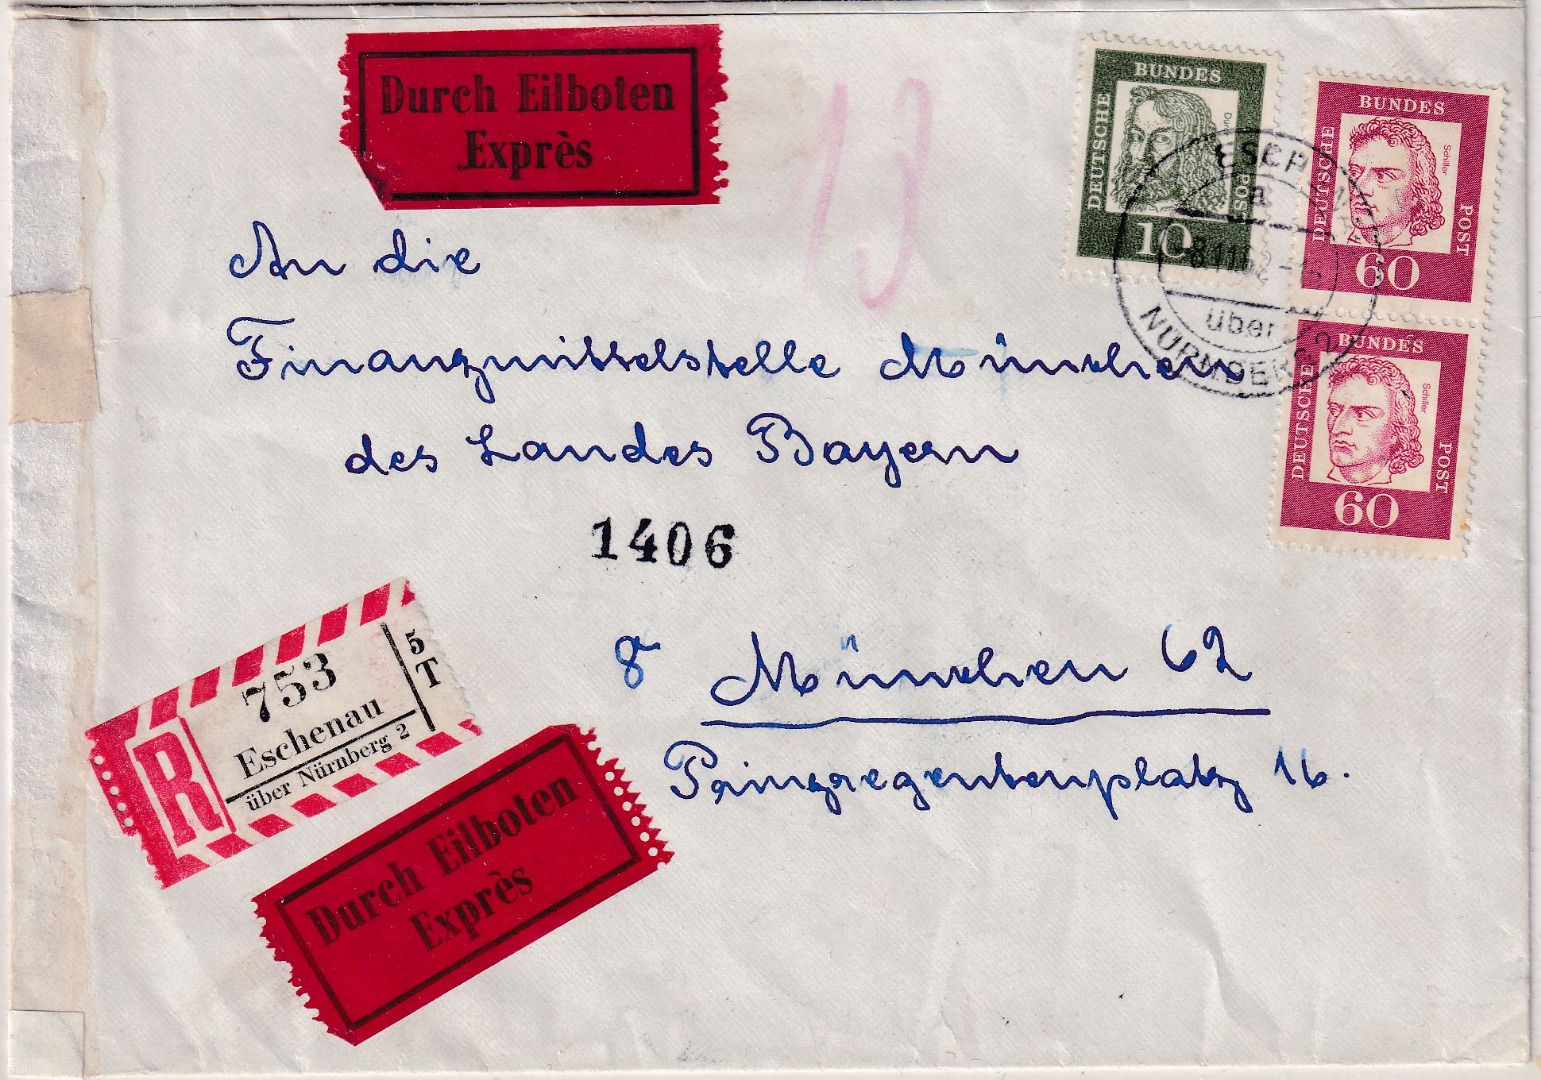 Durch Eilboten
Exprès
13
DEUTSCHE BUNDES POST
10
DEUTSCHE BUNDES POST
Schiller
60
DEUTSCHE BUNDES POST
Schiller
60
a
über
NÜRNBERG 2
An die
Finanzmittelstelle München
des Landes Bayern
1406
8 München 62
Prinzregentenplatz 16.
R
753
Eschenau
über Nürnberg 2
5
T
Durch Eilboten
Exprès